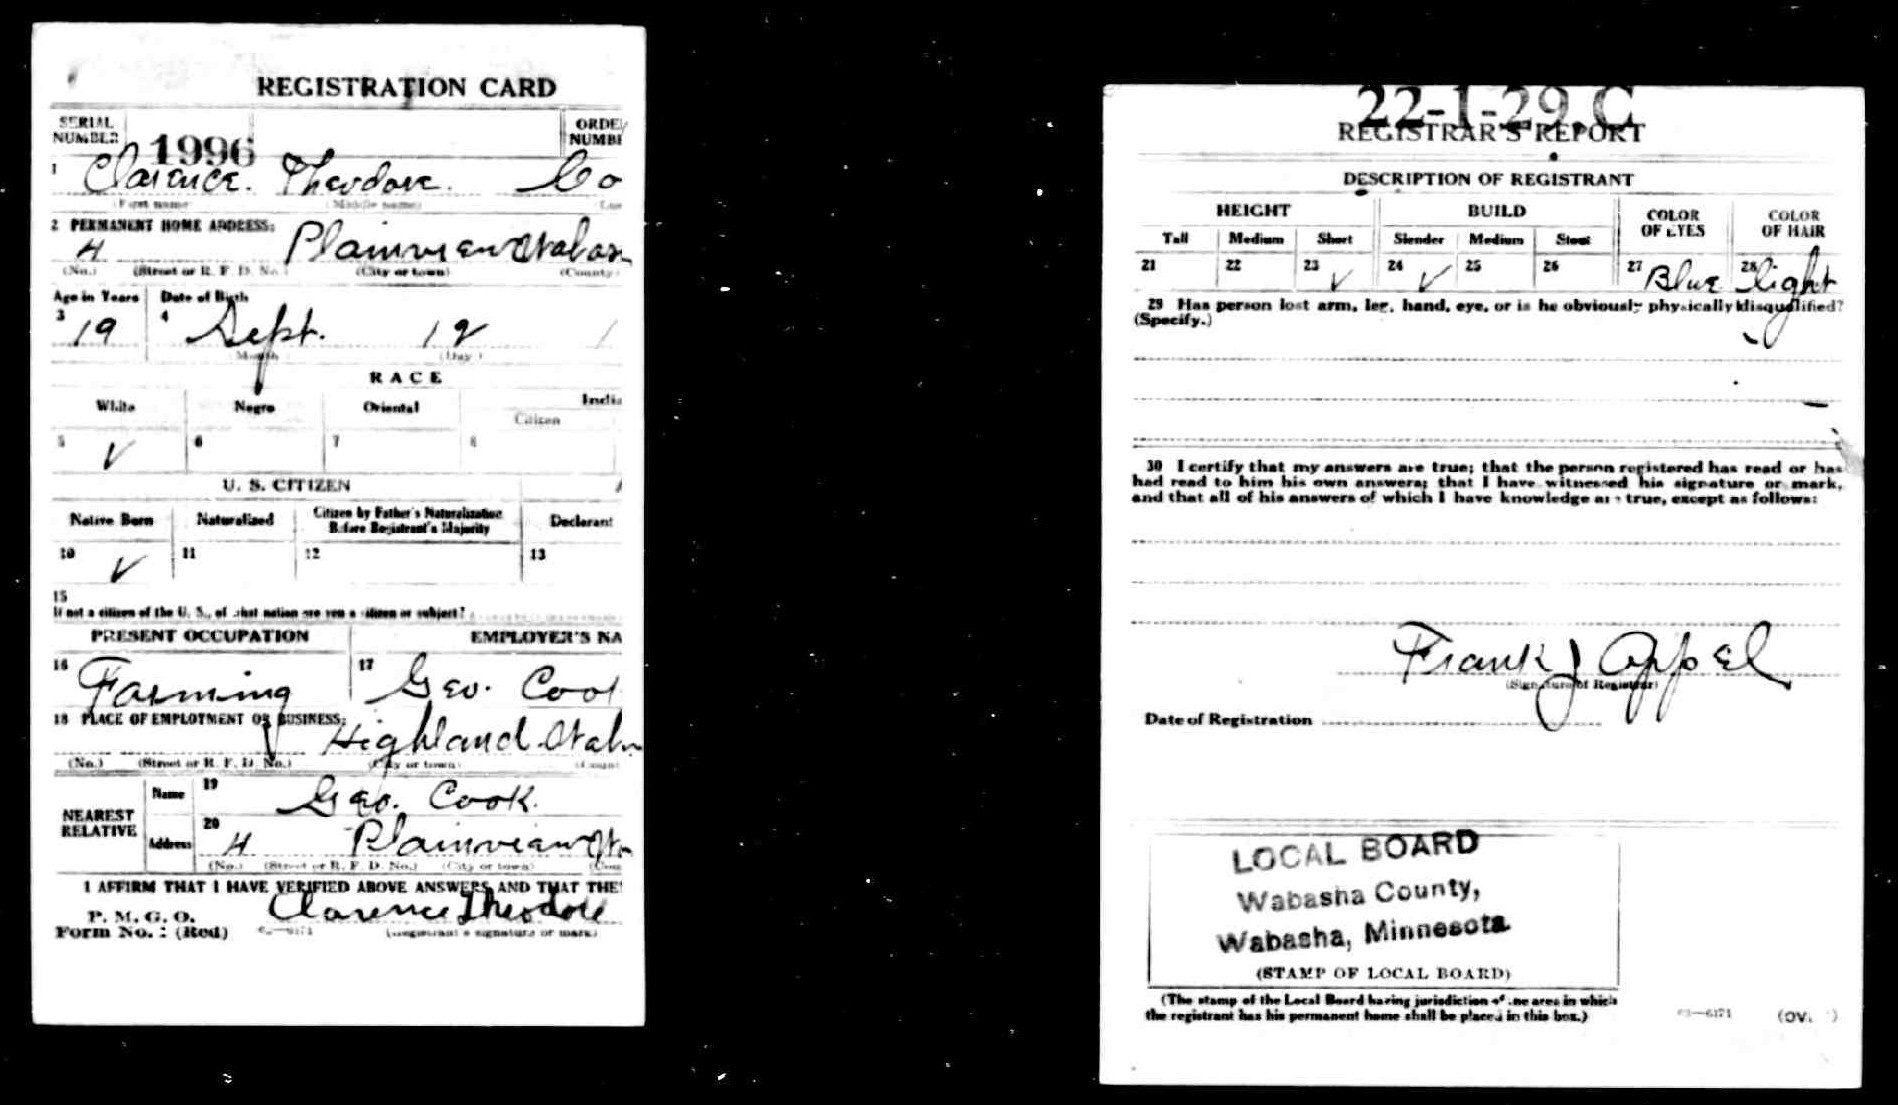 REGISTRATION CARD
SERIAL NUMBER 1996 ORDE NUMB
1 Clarence Theodore Co
(First name) (Middle name) (Las
2 PERMANENT HOME ADDRESS:
4 Plainview Wabas
(No.) (Street or R. F. D. No.) (City or town) (County
Age in Years Date of Birth
3 19 4 Sept. 12 1
(Month) (Day)
RACE
White Negro Oriental India
Citizen
5 ✓ 6 7 8
U. S. CITIZEN
Native Born Naturalized Citizen by Father's Naturalization Before Registrant's Majority Declarant
10 ✓ 11 12 13
15
If not a citizen of the U. S., of what nation are you a citizen or subject?
PRESENT OCCUPATION EMPLOYER'S NA
16 Farming 17 Geo. Coo
18 PLACE OF EMPLOYMENT OR BUSINESS:
Highland Wab
(No.) (Street or R. F. D. No.) (City or town) (Count
NEAREST RELATIVE
Name 19 Geo. Cook.
Address 20 4 Plainview Wa
(No.) (Street or R. F. D. No.) (City or town) (Cou
I AFFIRM THAT I HAVE VERIFIED ABOVE ANSWERS AND THAT THE
P. M. G. O.
Form No. 1 (Red) Clarence Theodore
(Registrant's signature or mark)
22-1-29.C
REGISTRAR'S REPORT
DESCRIPTION OF REGISTRANT
HEIGHT BUILD COLOR OF EYES COLOR OF HAIR
Tall Medium Short Slender Medium Stout
21 22 23 ✓ 24 ✓ 25 26 27 Blue 28 light
29 Has person lost arm, leg, hand, eye, or is he obviously physically disqualified?
(Specify.)
30 I certify that my answers are true; that the person registered has read or has
had read to him his own answers; that I have witnessed his signature or mark,
and that all of his answers of which I have knowledge are true, except as follows:
Frank J Appel
(Signature of Registrar)
Date of Registration
LOCAL BOARD
Wabasha County,
Wabasha, Minnesota
(STAMP OF LOCAL BOARD)
(The stamp of the Local Board having jurisdiction of the area in which
the registrant has his permanent home shall be placed in this box.)
63—6171 (OV